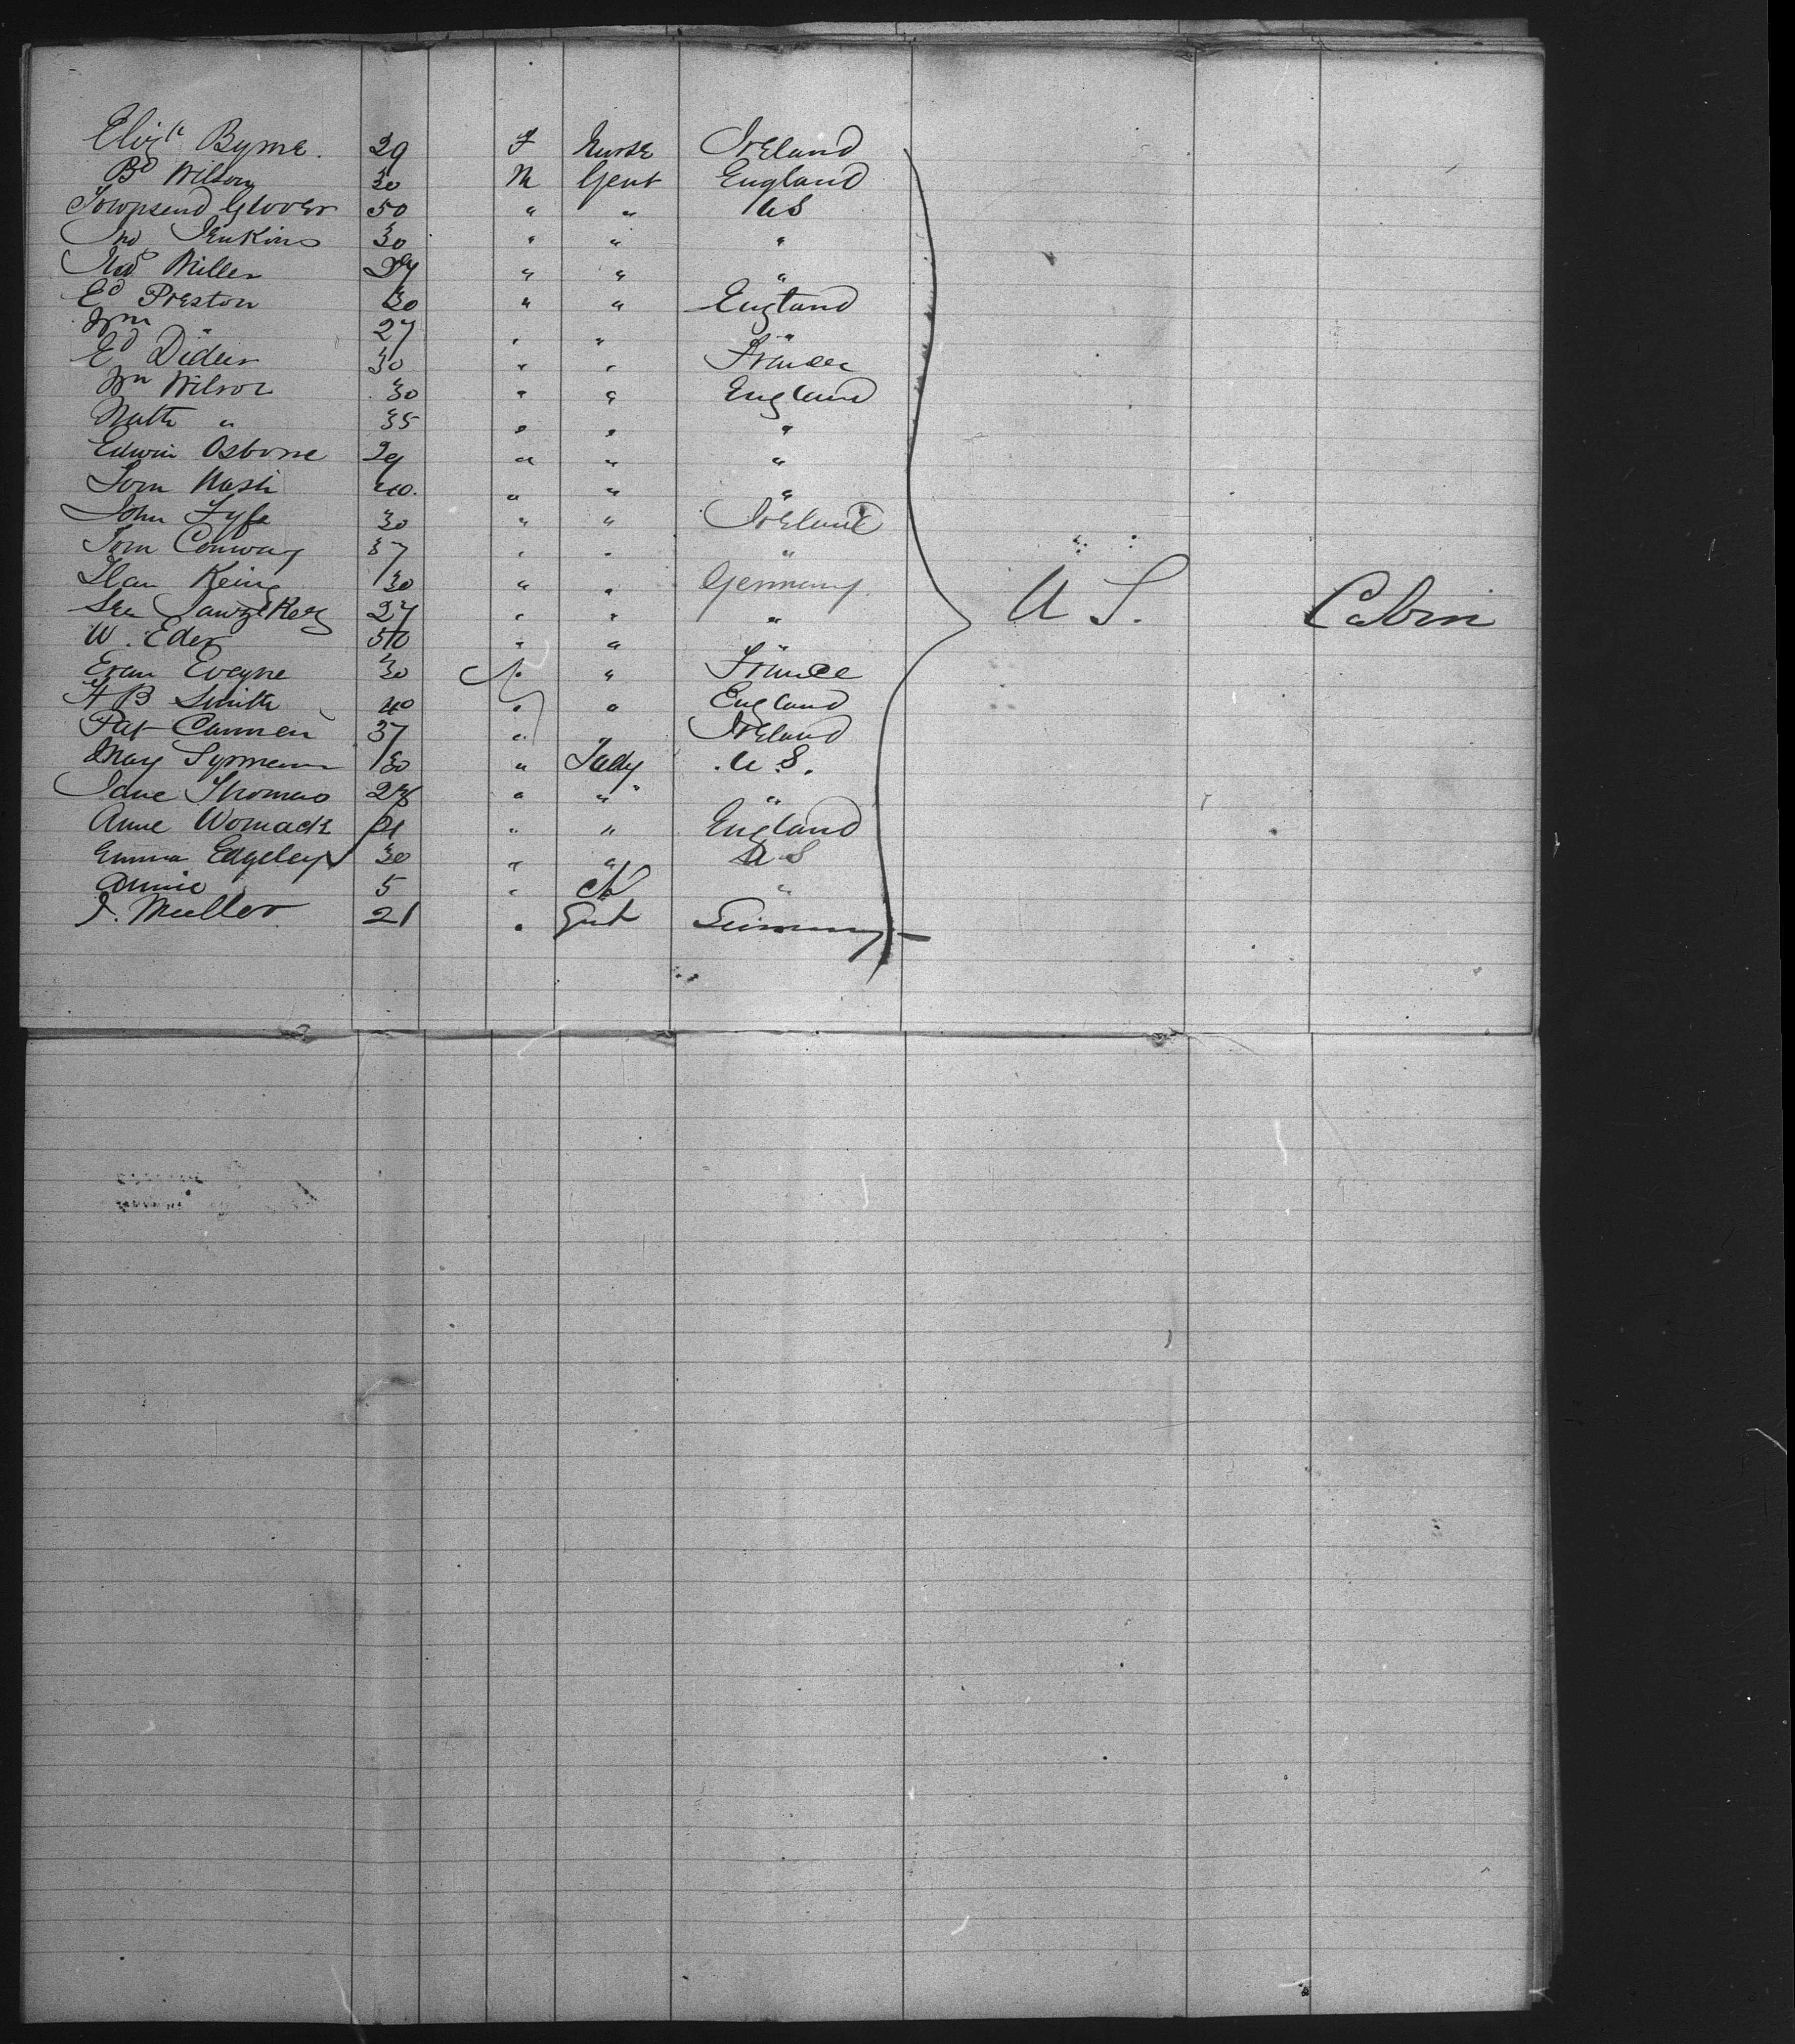 Elizh Byrne. 29 F Nurse Ireland
Bd Wilson 30 M Gent England
Townsend Glover 50 " " US
Jno Jenkins 30 " " "
Miller " " "
Ed Preston 30 " " England
Wm " 27 " " "
Ed Didier 30 " " France
Wm Wilson 30 " " England
Nath " 35 " " "
Edwin Osborne 29 " " "
Tom Nash 40. " " "
John Fyfe 30 " " Ireland
Tom Conway 37 " " "
30 " " Germany
27 " " "
W. Eder " " "
Evan 30 " " France
H B Smith 40 " " England
Pat 37 " " Ireland
May 30 " Lady U.S.
Jane Thomas " " "
Anne Womack 21 " " England
Emma Edgeley 30 " " US
Annie 5 " Ch "
J. Muller 21 " Gent Germany
U S. Cabin